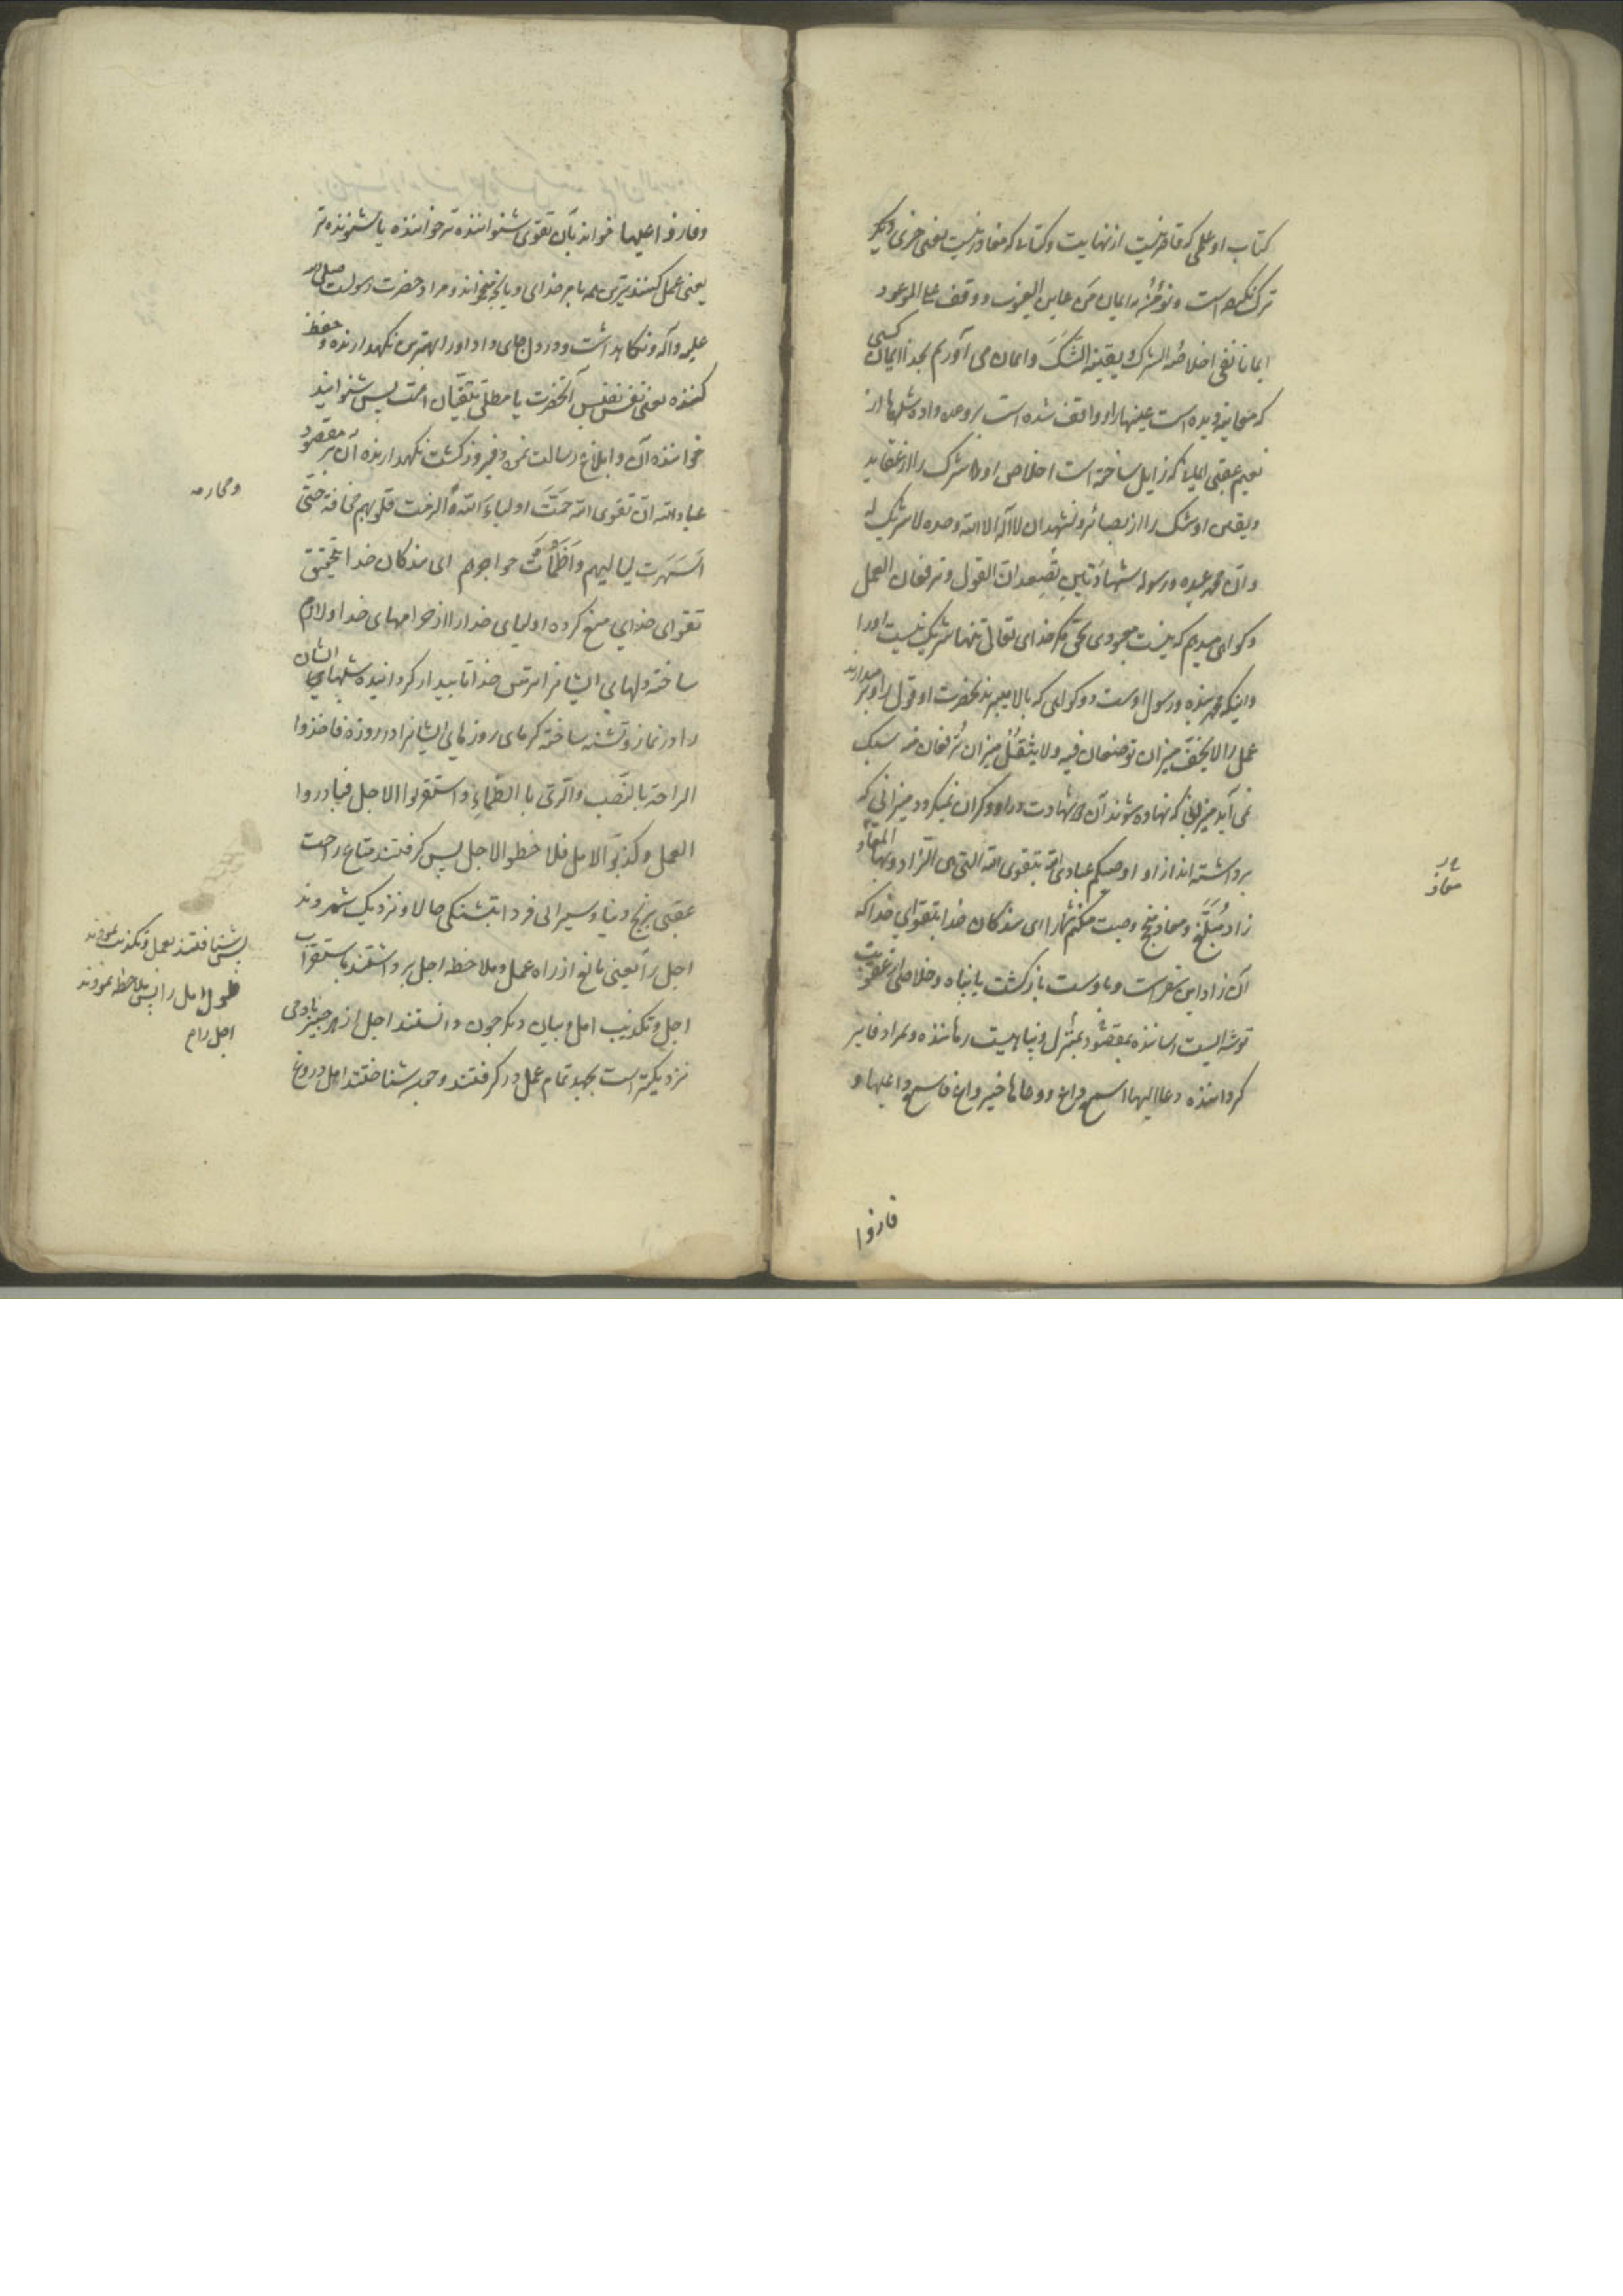 کتاب او علمی که قاصر نیست از نهایت و کتابی که مغادر نیست یعنی چیزی دیگر
ترک نکرده است و نؤمن به ایمان من عاین الغیوب و وقف علی الموعود
ایمانا نفی اخلاصه الشرک و یقینه الشک و ایمان می آوریم بخدا ایمان کسی
که معاینه دیده است غیبها را و واقف شده است بر وعده داده شدها از
نعیم عقبی ایمانی که زایل ساخته است اخلاص او شرک را از عقاید
و یقین او شک را از بصائر و نشهد ان لا اله الا الله وحده لا شریک له
و ان محمد عبده و رسوله شهادتین تصعدان القول و ترفعان العمل
و گواهی میدهم که نیست معبودی بحق مگر خدای تعالی تنها شریک نیست او را
و اینکه محمد بنده و رسول اوست دو گواهی که بالا میبرند بحضرت او قول را و بر میدارند
عمل را لا یخف میزان توضعان فیه و لا یثقل میزان ترفعان منه سبک
نمی آید میزانی که نهاده شوند آن دو شهادت در او و گران نمیگردد میزانی که
برداشته اند از او اوصیکم عبادی الله بتقوی الله التی هی الزاد و بها المعاد
زاد مبلغ و معاد منجح وصیت میکنم شما را ای بندگان خدا بتقوای خدا که
آن زاد این سفر است و باوست بازگشت یا پناه و خلاصی از عقوبت
توشه ایست رساننده بمقصود بمنزل و پناهیست رهاننده و بمراد فایز
گرداننده دعا الیها اسمع داع و وعاها خیر واع فاسمع داعیها و
معاذ
فازوا
و فاز واعیها خواند بآن تقوی شنواننده تر خواننده یا شنونده تر
یعنی عمل کننده ترین همه بامر خدای و بآنچه میخواند و مراد حضرت رسولست صلی الله
علیه و آله و نگاهداشت و در دل جای داد او را بهترین نگهدارنده و حفظ
کننده یعنی نفس نفیس آنحضرت یا مطلق متقیان امت پس شنوانید
خواننده آن و ابلاغ رسالت نمود و فیروز گشت نگهدارنده آن بر مقصود
عباد الله ان تقوی الله حمت اولیاء الله و الزمت قلوبهم مخافته حتی
اسهرت لیالیهم و اظمات هواجرهم ای بندگان خدا بتحقیق
تقوای خدای منع کرده اولیای خدا را از حرامهای خدا و لازم
ساخته دلهای ایشانرا ترس خدا تا بیدار گردانیده شبهای ایشان
را در نماز و تشنه ساخته گرمای روزهای ایشانرا در روزه فاخذوا
الراحة بالنصب و الری بالظماء و استقربوا الاجل فبادروا
العمل و کذبوا الامل فلاحظوا الاجل پس گرفتند متاع راحت
عقبی برنج دنیا و سیرابی فردا بتشنگی حالا و نزدیک شمردند
اجل را یعنی مانع از راه عمل و ملاحظه اجل برداشتند باستقراب
اجل و تکذیب امل و بیان دیگر چون دانستند اجل از هر چیز بآدمی
نزدیکتر است بجهد تمام عمل در گرفتند و چه شناختند امل دروغ
و محارمه
پس شتافتند بعمل و تکذیب نمودند
طول امل را پس ملاحظه نمودند
اجل را